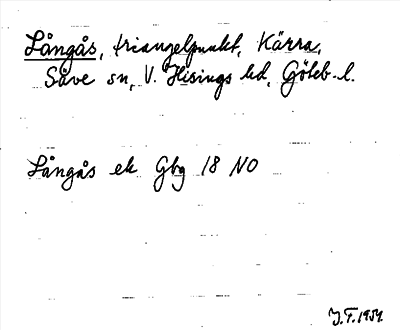 Långås, triangelpunkt, Kärra,
Säve sn, V. Hisings hd, Göteb. l.
Långås ek Gbg 18 NO
J.F. 1954